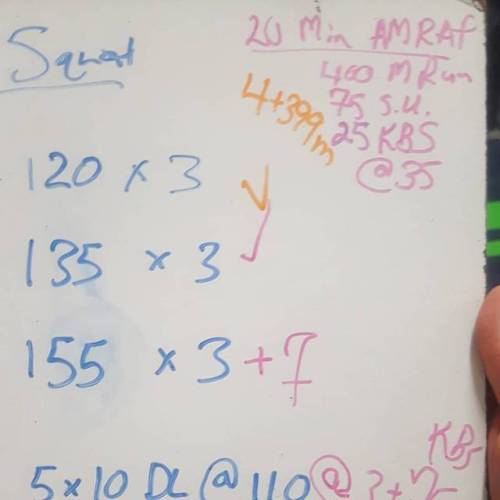 Squat
120 x 3
135 x 3
155 x 3 + 7
5x10 DL @ 110 @
20 Min AMRAP
400 M Run
75 S.U.
25 KBS
@35
4+399m
KBs